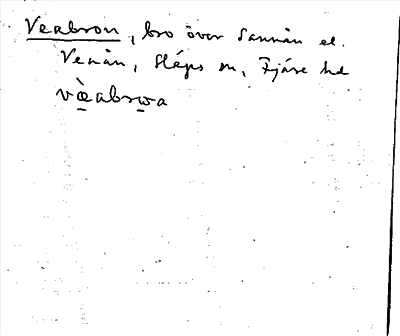 Veabron, bro över Sannån el.
Venån, Släps sn, Fjäre hd
vœ̀abrωa